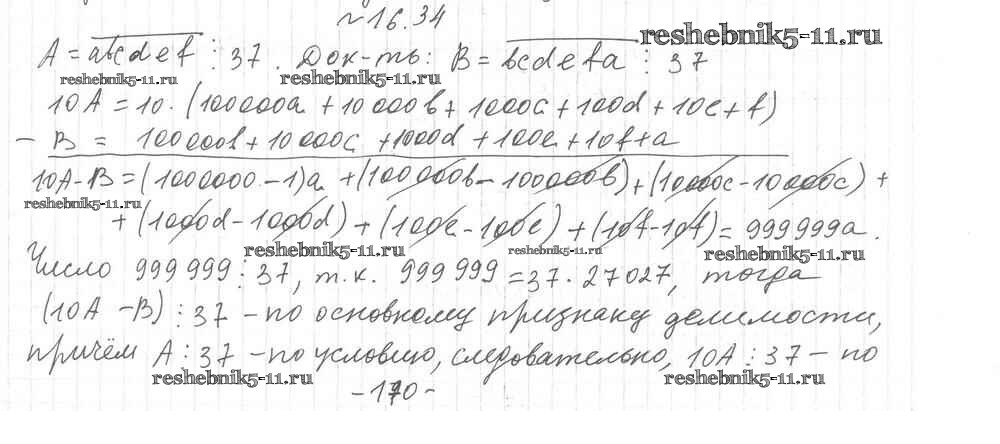 №16.34
reshebnik5-11.ru
A = abcdef ⋮ 37. Док-ть: B = bcdefa ⋮ 37
reshebnik5-11.ru reshebnik5-11.ru
10A = 10·(100000a + 10000b + 1000c + 100d + 10e + f)
− B = 100000b + 10000c + 1000d + 100e + 10f + a
10A-B = (1000000 - 1)a + (100000b - 100000b) + (10000c - 10000c) +
reshebnik5-11.ru
+ (1000d - 1000d) + (100e - 100e) + (10f - 10f) = 999999a.
reshebnik5-11.ru reshebnik5-11.ru reshebnik5-11.ru
Число 999999 ⋮ 37, т.к. 999999 = 37·27027, тогда
(10A - B) ⋮ 37 - по основному признаку делимости,
причём A ⋮ 37 - по условию, следовательно, 10A ⋮ 37 - по
reshebnik5-11.ru reshebnik5-11.ru
-170-